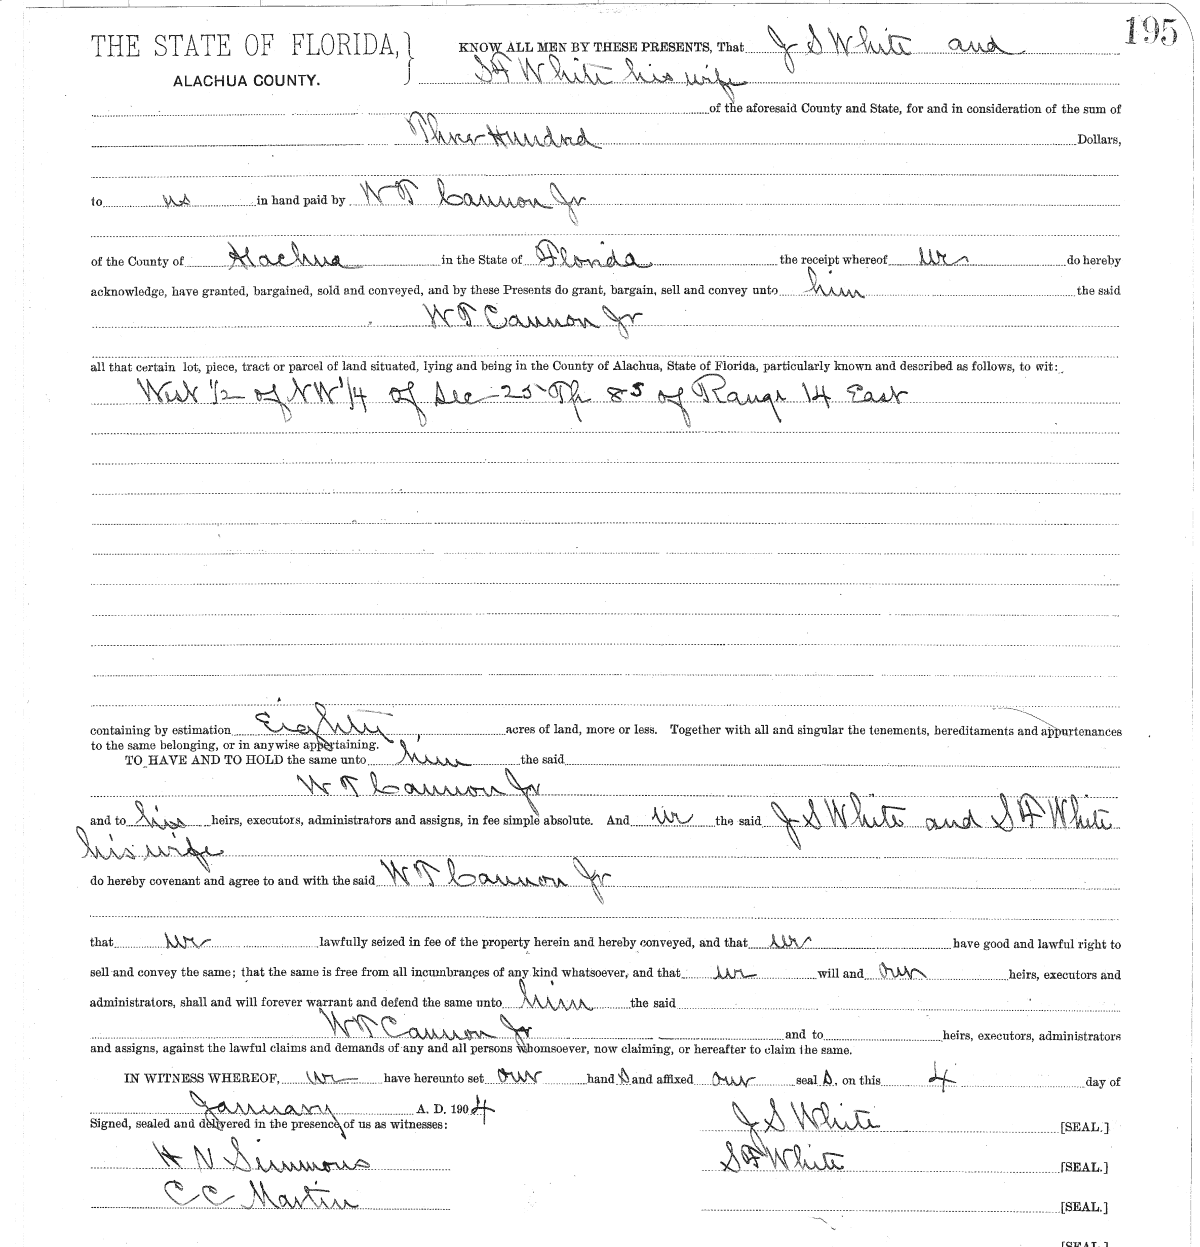 195
THE STATE OF FLORIDA, KNOW ALL MEN BY THESE PRESENTS, That J S White and
ALACHUA COUNTY. S F White his wife
of the aforesaid County and State, for and in consideration of the sum of
Three Hundred Dollars,
to us in hand paid by W T Cannon Jr
of the County of Alachua in the State of Florida the receipt whereof we do hereby
acknowledge, have granted, bargained, sold and conveyed, and by these Presents do grant, bargain, sell and convey unto him the said
W T Cannon Jr
all that certain lot, piece, tract or parcel of land situated, lying and being in the County of Alachua, State of Florida, particularly known and described as follows, to wit:
West 1/2 of NW 1/4 of Sec 25 Tp 8S of Range 14 East
containing by estimation Eighty acres of land, more or less. Together with all and singular the tenements, hereditaments and appurtenances
to the same belonging, or in anywise appertaining.
TO HAVE AND TO HOLD the same unto him the said
W T Cannon Jr
and to his heirs, executors, administrators and assigns, in fee simple absolute. And we the said J S White and S F White
his wife
do hereby covenant and agree to and with the said W T Cannon Jr
that we lawfully seized in fee of the property herein and hereby conveyed, and that we have good and lawful right to
sell and convey the same; that the same is free from all incumbrances of any kind whatsoever, and that we will and our heirs, executors and
administrators, shall and will forever warrant and defend the same unto him the said
W T Cannon Jr and to heirs, executors, administrators
and assigns, against the lawful claims and demands of any and all persons whomsoever, now claiming, or hereafter to claim the same.
IN WITNESS WHEREOF, we have hereunto set our hand s and affixed our seal s, on this 4 day of
January A. D. 1904
Signed, sealed and delivered in the presence of us as witnesses: J S White [SEAL.]
H N Simmons S F White [SEAL.]
C C Martin [SEAL.]
[SEAL.]